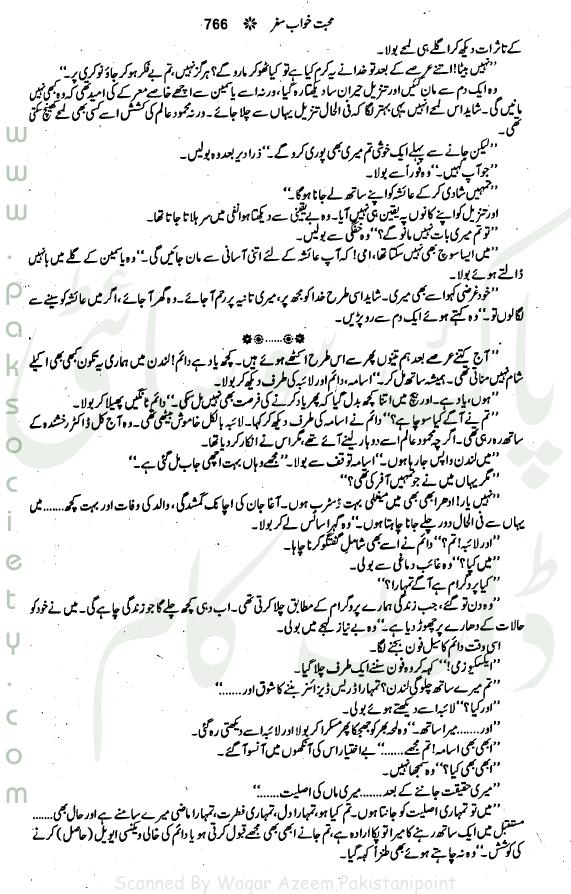 محبت خواب سفر ❋ 766
کے تاثرات دیکھ کر اگلے ہی لمحے بولا۔
’’نہیں بیٹا! اتنے عرصے کے بعد تو خدا نے یہ کرم کیا ہے تو کیا ٹھوکر مارو گے؟ ہرگز نہیں، تم بے فکر ہو کر جاؤ نوکری پر۔‘‘
وہ ایک دم سے مان گئیں اور تنزیل حیران سا دیکھتا رہ گیا، ورنہ اسے یاسمین سے اچھے خاصے معرکے کی امید تھی کہ وہ کبھی نہیں
مانیں گی۔ شاید اس لمحے انہیں یہی بہتر لگا کہ فی الحال تنزیل یہاں سے چلا جائے۔ ورنہ محمود عالم کی کشش اسے کسی بھی لمحے کھینچ سکتی
تھی۔
’’لیکن جانے سے پہلے ایک خوشی تم میری بھی پوری کرو گے۔‘‘ ذرا دیر بعد وہ بولیں۔
’’جو آپ کہیں۔‘‘ وہ فوراً سے بولا۔
’’تمہیں شادی کر کے عائشہ کو اپنے ساتھ لے جانا ہوگا۔‘‘
اور تنزیل کو اپنے کانوں پہ یقین ہی نہیں آیا۔ وہ بے یقینی سے دیکھتا ہوا نفی میں سر ہلاتا جاتا تھا۔
’’تو تم میری بات نہیں مانو گے؟‘‘ وہ خفگی سے بولیں۔
’’میں ایسا سوچ بھی نہیں سکتا تھا، امی! کہ آپ عائشہ کے لئے اتنی آسانی سے مان جائیں گی۔‘‘ وہ یاسمین کے گلے میں بانہیں
ڈالتے ہوئے بولا۔
’’خود غرضی کہو اسے بھی میری۔ شاید اسی طرح خدا کو مجھ پر، میری تانیہ پر رحم آ جائے۔ وہ گھر آ جائے، اگر میں عائشہ کو سینے سے
لگا لوں تو۔‘‘ وہ کہتے ہوئے ایک دم سے رو پڑیں۔
❋❋......❋❋
’’آج کتنے عرصے بعد ہم تینوں پھر سے اس طرح اکٹھے ہوئے ہیں۔ کچھ یاد ہے دائم! لندن میں ہماری یہ تکون کبھی بھی اکیلے
شام نہیں مناتی تھی۔ ہمیشہ ساتھ مل کر۔‘‘ اسامہ، دائم اور لائبہ کی طرف دیکھ کر بولا۔
’’ہوں، یاد ہے۔ اور بیچ میں اتنا کچھ بدل گیا کہ پھر یاد کرنے کی فرصت بھی نہیں مل سکی۔‘‘ دائم ٹانگیں پھیلا کر بولا۔
’’تم نے آگے کیا سوچا ہے؟‘‘ دائم نے اسامہ کی طرف دیکھ کر کہا۔ لائبہ بالکل خاموش بیٹھی تھی۔ وہ آج کل ڈاکٹر رخشندہ کے
ساتھ رہ رہی تھی۔ اگرچہ محمود عالم اسے دو بار لینے آئے تھے مگر اس نے انکار کر دیا تھا۔
’’میں لندن واپس جا رہا ہوں۔‘‘ اسامہ توقف سے بولا۔ ’’مجھے وہاں بہت اچھی جاب مل گئی ہے۔‘‘
’’مگر یہاں میں نے جو تمہیں آفر کی تھی؟‘‘
’’نہیں یار! ادھر ابھی بھی میں مینٹلی بہت ڈسٹرب ہوں۔ آغا جان کی اچانک گمشدگی، والد کی وفات اور بہت کچھ....... میں
یہاں سے فی الحال دور چلے جانا چاہتا ہوں۔‘‘ وہ گہرا سانس لے کر بولا۔
’’اور لائبہ! تم؟‘‘ دائم نے اسے بھی شاملِ گفتگو کرنا چاہا۔
’’میں کیا؟‘‘ وہ غائب دماغی سے بولی۔
’’کیا پروگرام ہے آگے تمہارا؟‘‘
’’وہ دن تو گئے، جب زندگی ہمارے پروگرام کے مطابق چلا کرتی تھی۔ اب وہی کچھ چلے گا جو زندگی چاہے گی۔ میں نے خود کو
حالات کے دھارے پر چھوڑ دیا ہے۔‘‘ وہ بے نیاز لہجے میں بولی۔
اسی وقت دائم کا سیل فون بجنے لگا۔
’’ایکسکیوز می!‘‘ کہہ کر وہ فون سننے ایک طرف چلا گیا۔
’’تم میرے ساتھ چلو گی لندن؟ تمہارا ڈریس ڈیزائنر بننے کا شوق اور.......‘‘
’’اور کیا؟‘‘ لائبہ اسے دیکھتے ہوئے بولی۔
’’اور....... میرا ساتھ۔‘‘ وہ لمحہ بھر کو جھجکا پھر مسکرا کر بولا اور لائبہ اسے دیکھتی رہ گئی۔
’’ابھی بھی اسامہ! تم مجھے.......‘‘ بے اختیار اس کی آنکھوں میں آنسو آ گئے۔
’’ابھی بھی کیا؟‘‘ وہ سمجھا نہیں۔
’’میری حقیقت جاننے کے بعد....... میری ماں کی اصلیت.......‘‘
’’میں تو تمہاری اصلیت کو جانتا ہوں۔ تم کیا ہو، تمہارا دل، تمہاری فطرت، تمہارا ماضی میرے سامنے ہے اور حال بھی.......
مستقبل میں ایک ساتھ رہنے کا میرا تو پکا ارادہ ہے، تم جانے ابھی بھی مجھے قبول کرتی ہو یا دائم کی خالی ویکنسی ایویل (حاصل) کرنے
کی کوشش۔‘‘ وہ نہ چاہتے ہوئے بھی طنزاً کہہ گیا۔
www.paksociety.com
پاک سوسائٹی ڈاٹ کام
Scanned By Waqar Azeem Pakistanipoint